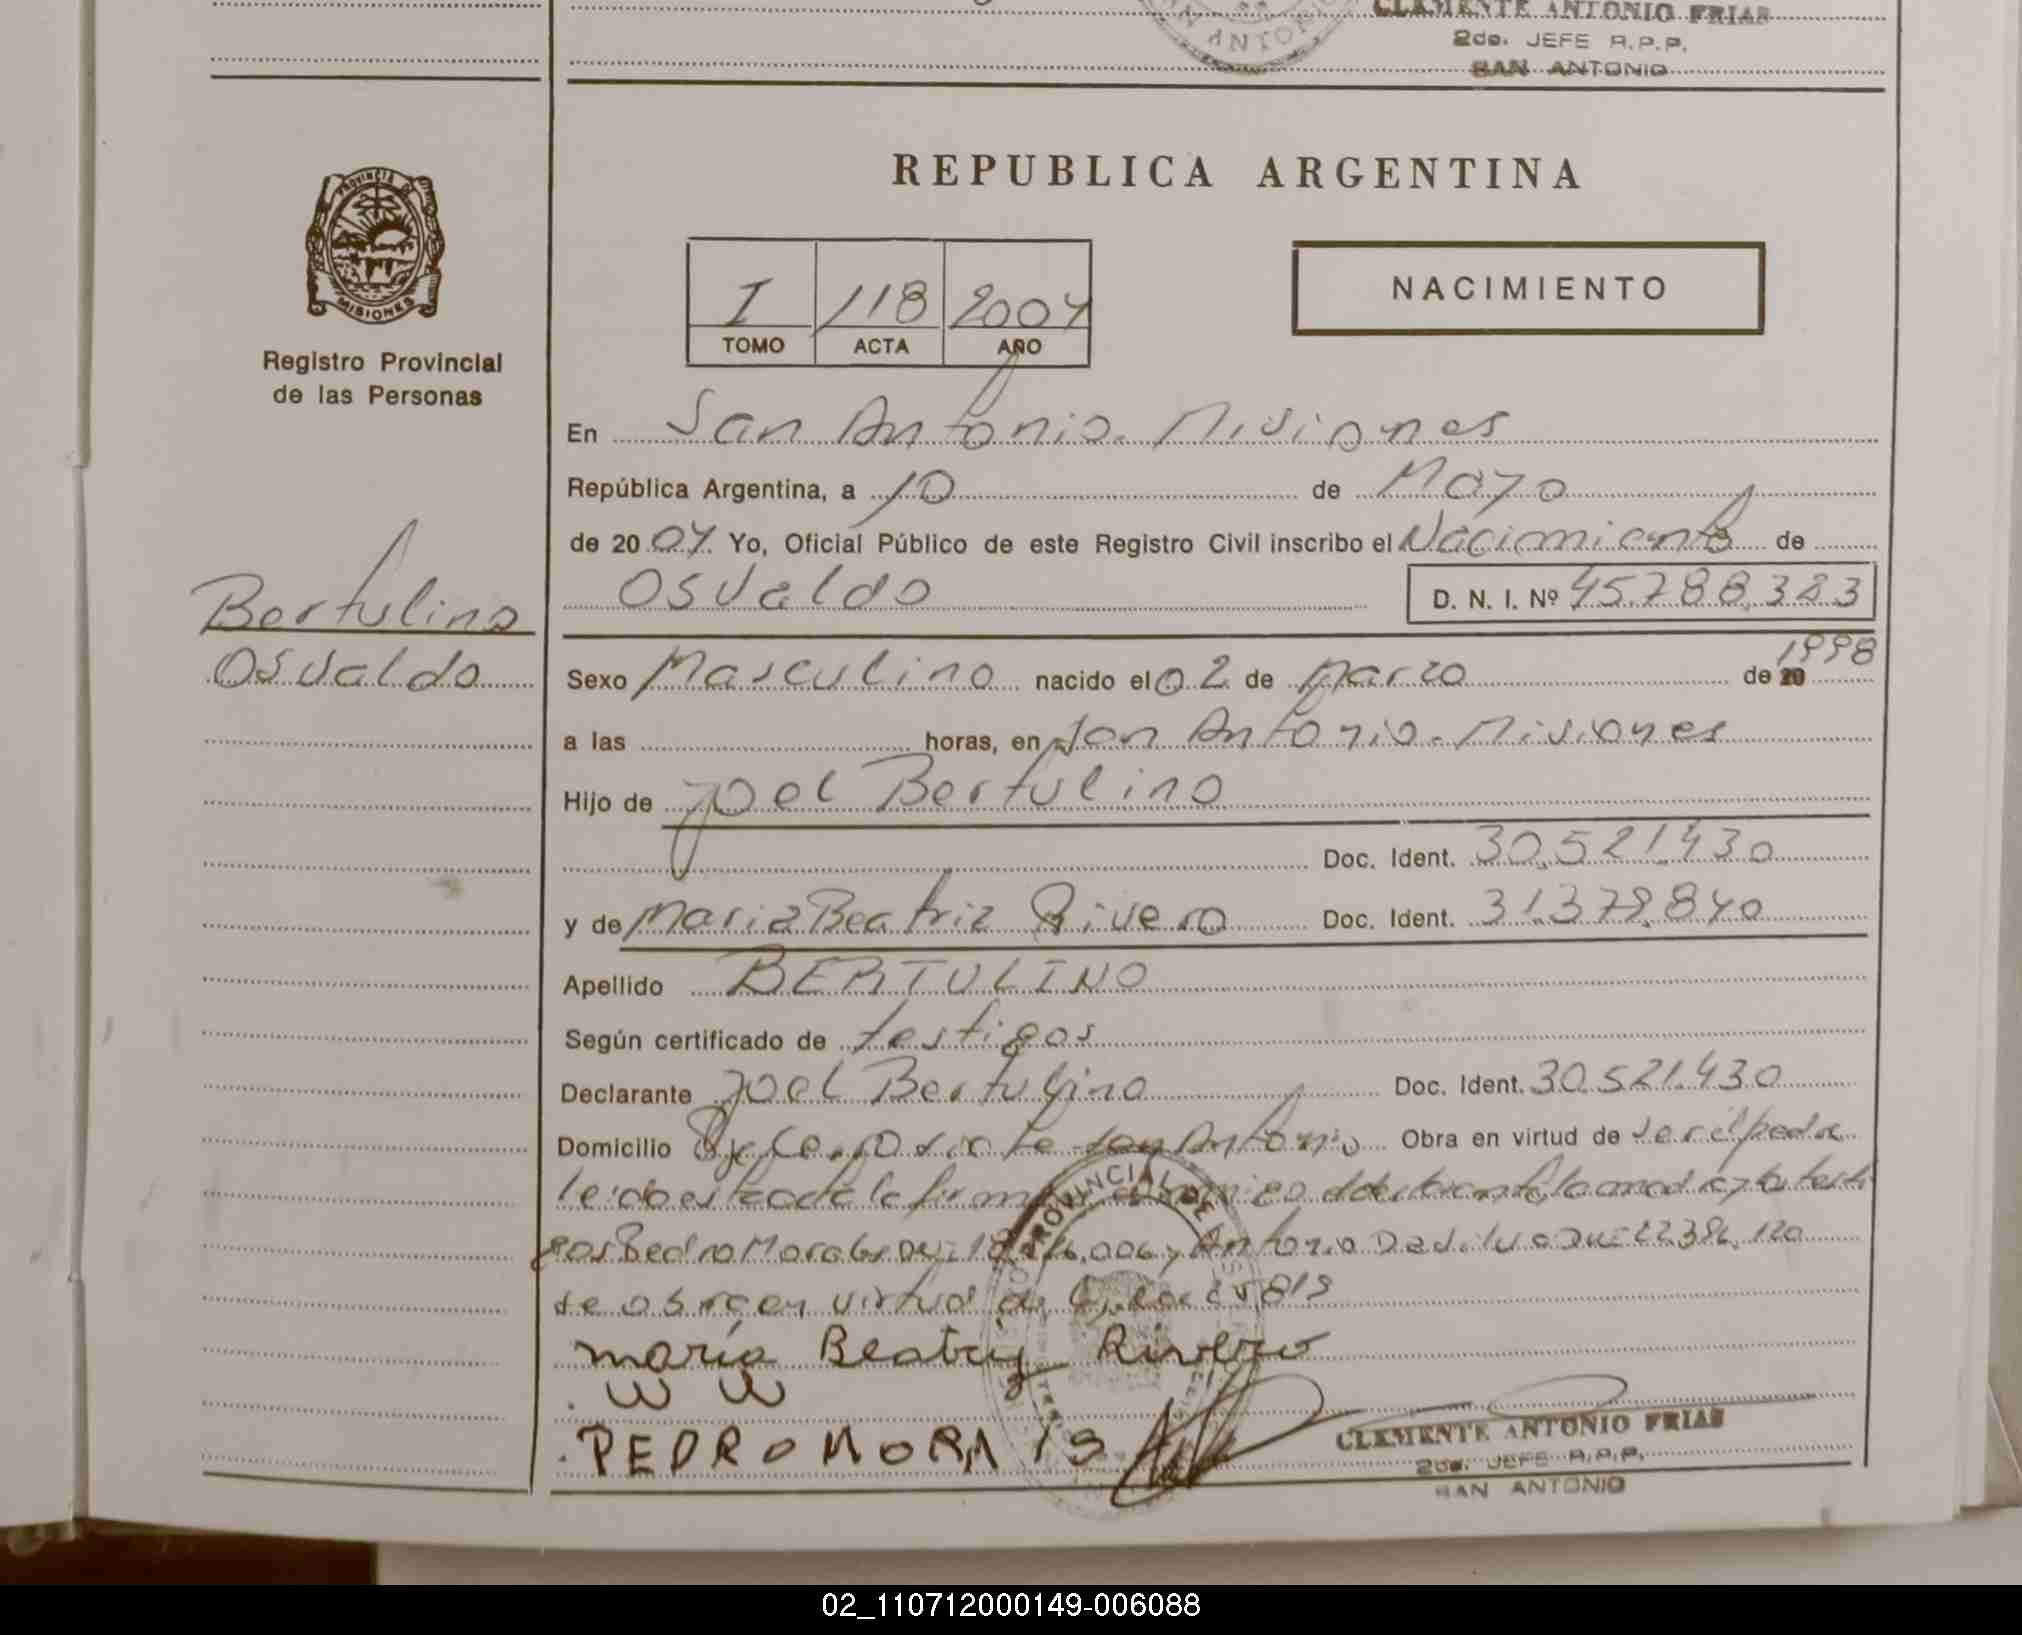 CLEMENTE ANTONIO FRIAS
2do. JEFE R.P.P.
SAN ANTONIO
REPUBLICA ARGENTINA
PROVINCIA DE
MISIONES
Registro Provincial
de las Personas
I 118 2007
TOMO ACTA AÑO
NACIMIENTO
En San Antonio. Misiones
República Argentina, a 10 de Mayo
de 20 07 Yo, Oficial Público de este Registro Civil inscribo el Nacimiento de
Osvaldo D. N. I. Nº 45.788.383
Bertulino
Osvaldo
Sexo Masculino nacido el 02 de Marzo de 20 1998
a las horas, en San Antonio. Misiones
Hijo de Joel Bertulino
Doc. Ident. 30.521.430
y de Maria Beatriz Rivero Doc. Ident. 31.379.840
Apellido BERTULINO
Según certificado de testigos
Declarante Joel Bertulino Doc. Ident. 30.521.430
Domicilio San Antonio Obra en virtud de ser el padre
leido esta acta la firma la madre y
Pedro Antonio Da Silva 22.386.120
se obra en virtud de
maría Beatriz Rivero
PEDRO MORAIS
CLEMENTE ANTONIO FRIAS
2do. JEFE R.P.P.
SAN ANTONIO
02_110712000149-006088